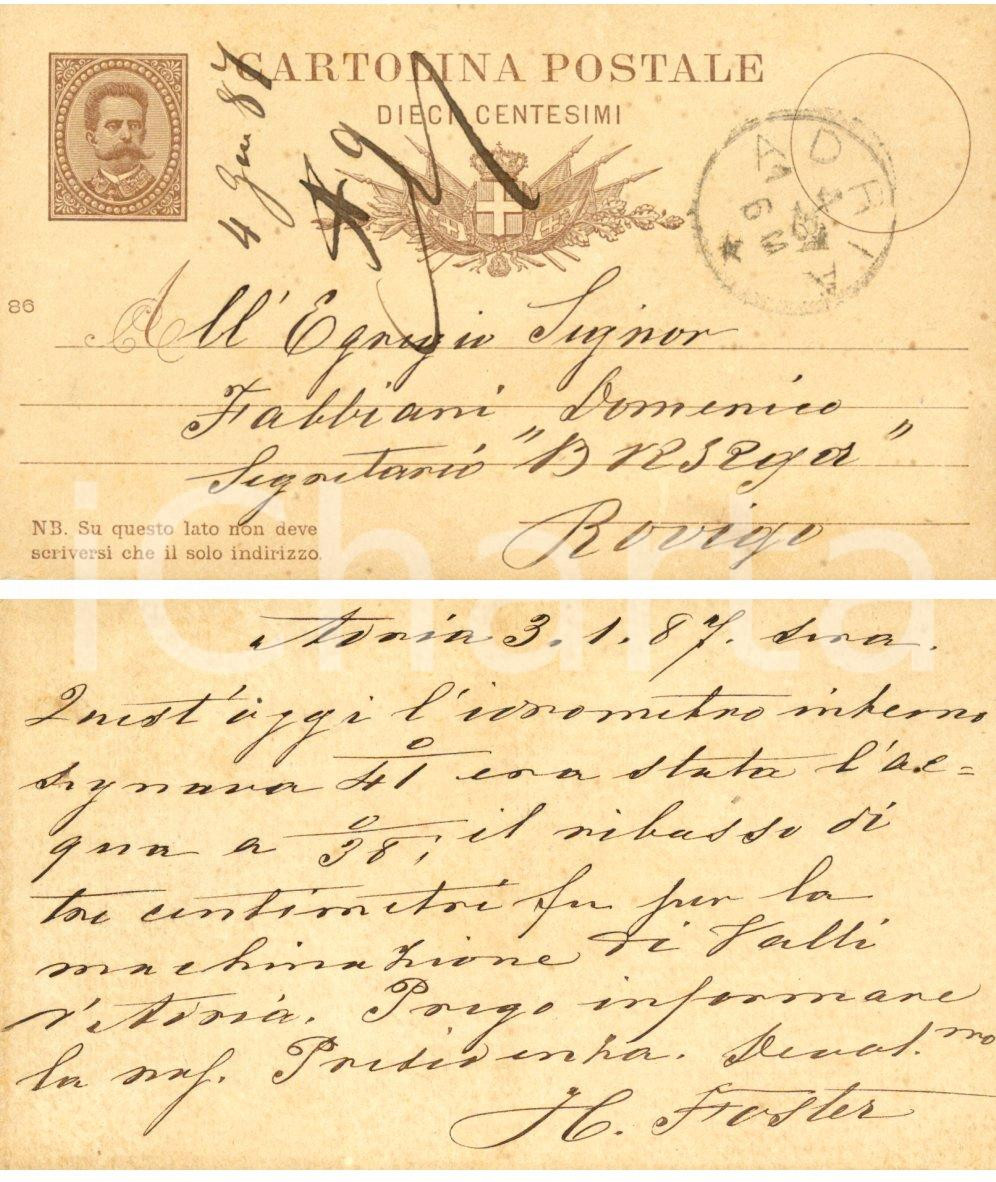 CARTOLINA POSTALE
DIECI CENTESIMI
4 Gen 87
N 9
ADRIA
4
6 M
86
All' Egregio Signor
Fabbiani Domenico
Segretario "
"
Rovigo
NB. Su questo lato non deve
scriversi che il solo indirizzo.
iCharta
Adria 3. 1. 87. sera.
Quest'oggi l'idrometro interno
segnava 0/41 era stata l'ac=
qua a 0/38; il ribasso di
tre centimetri fu per la
machinazione di Valli
d'Adria. Prego informare
la Presidenza. Devot.mo
H. Foster